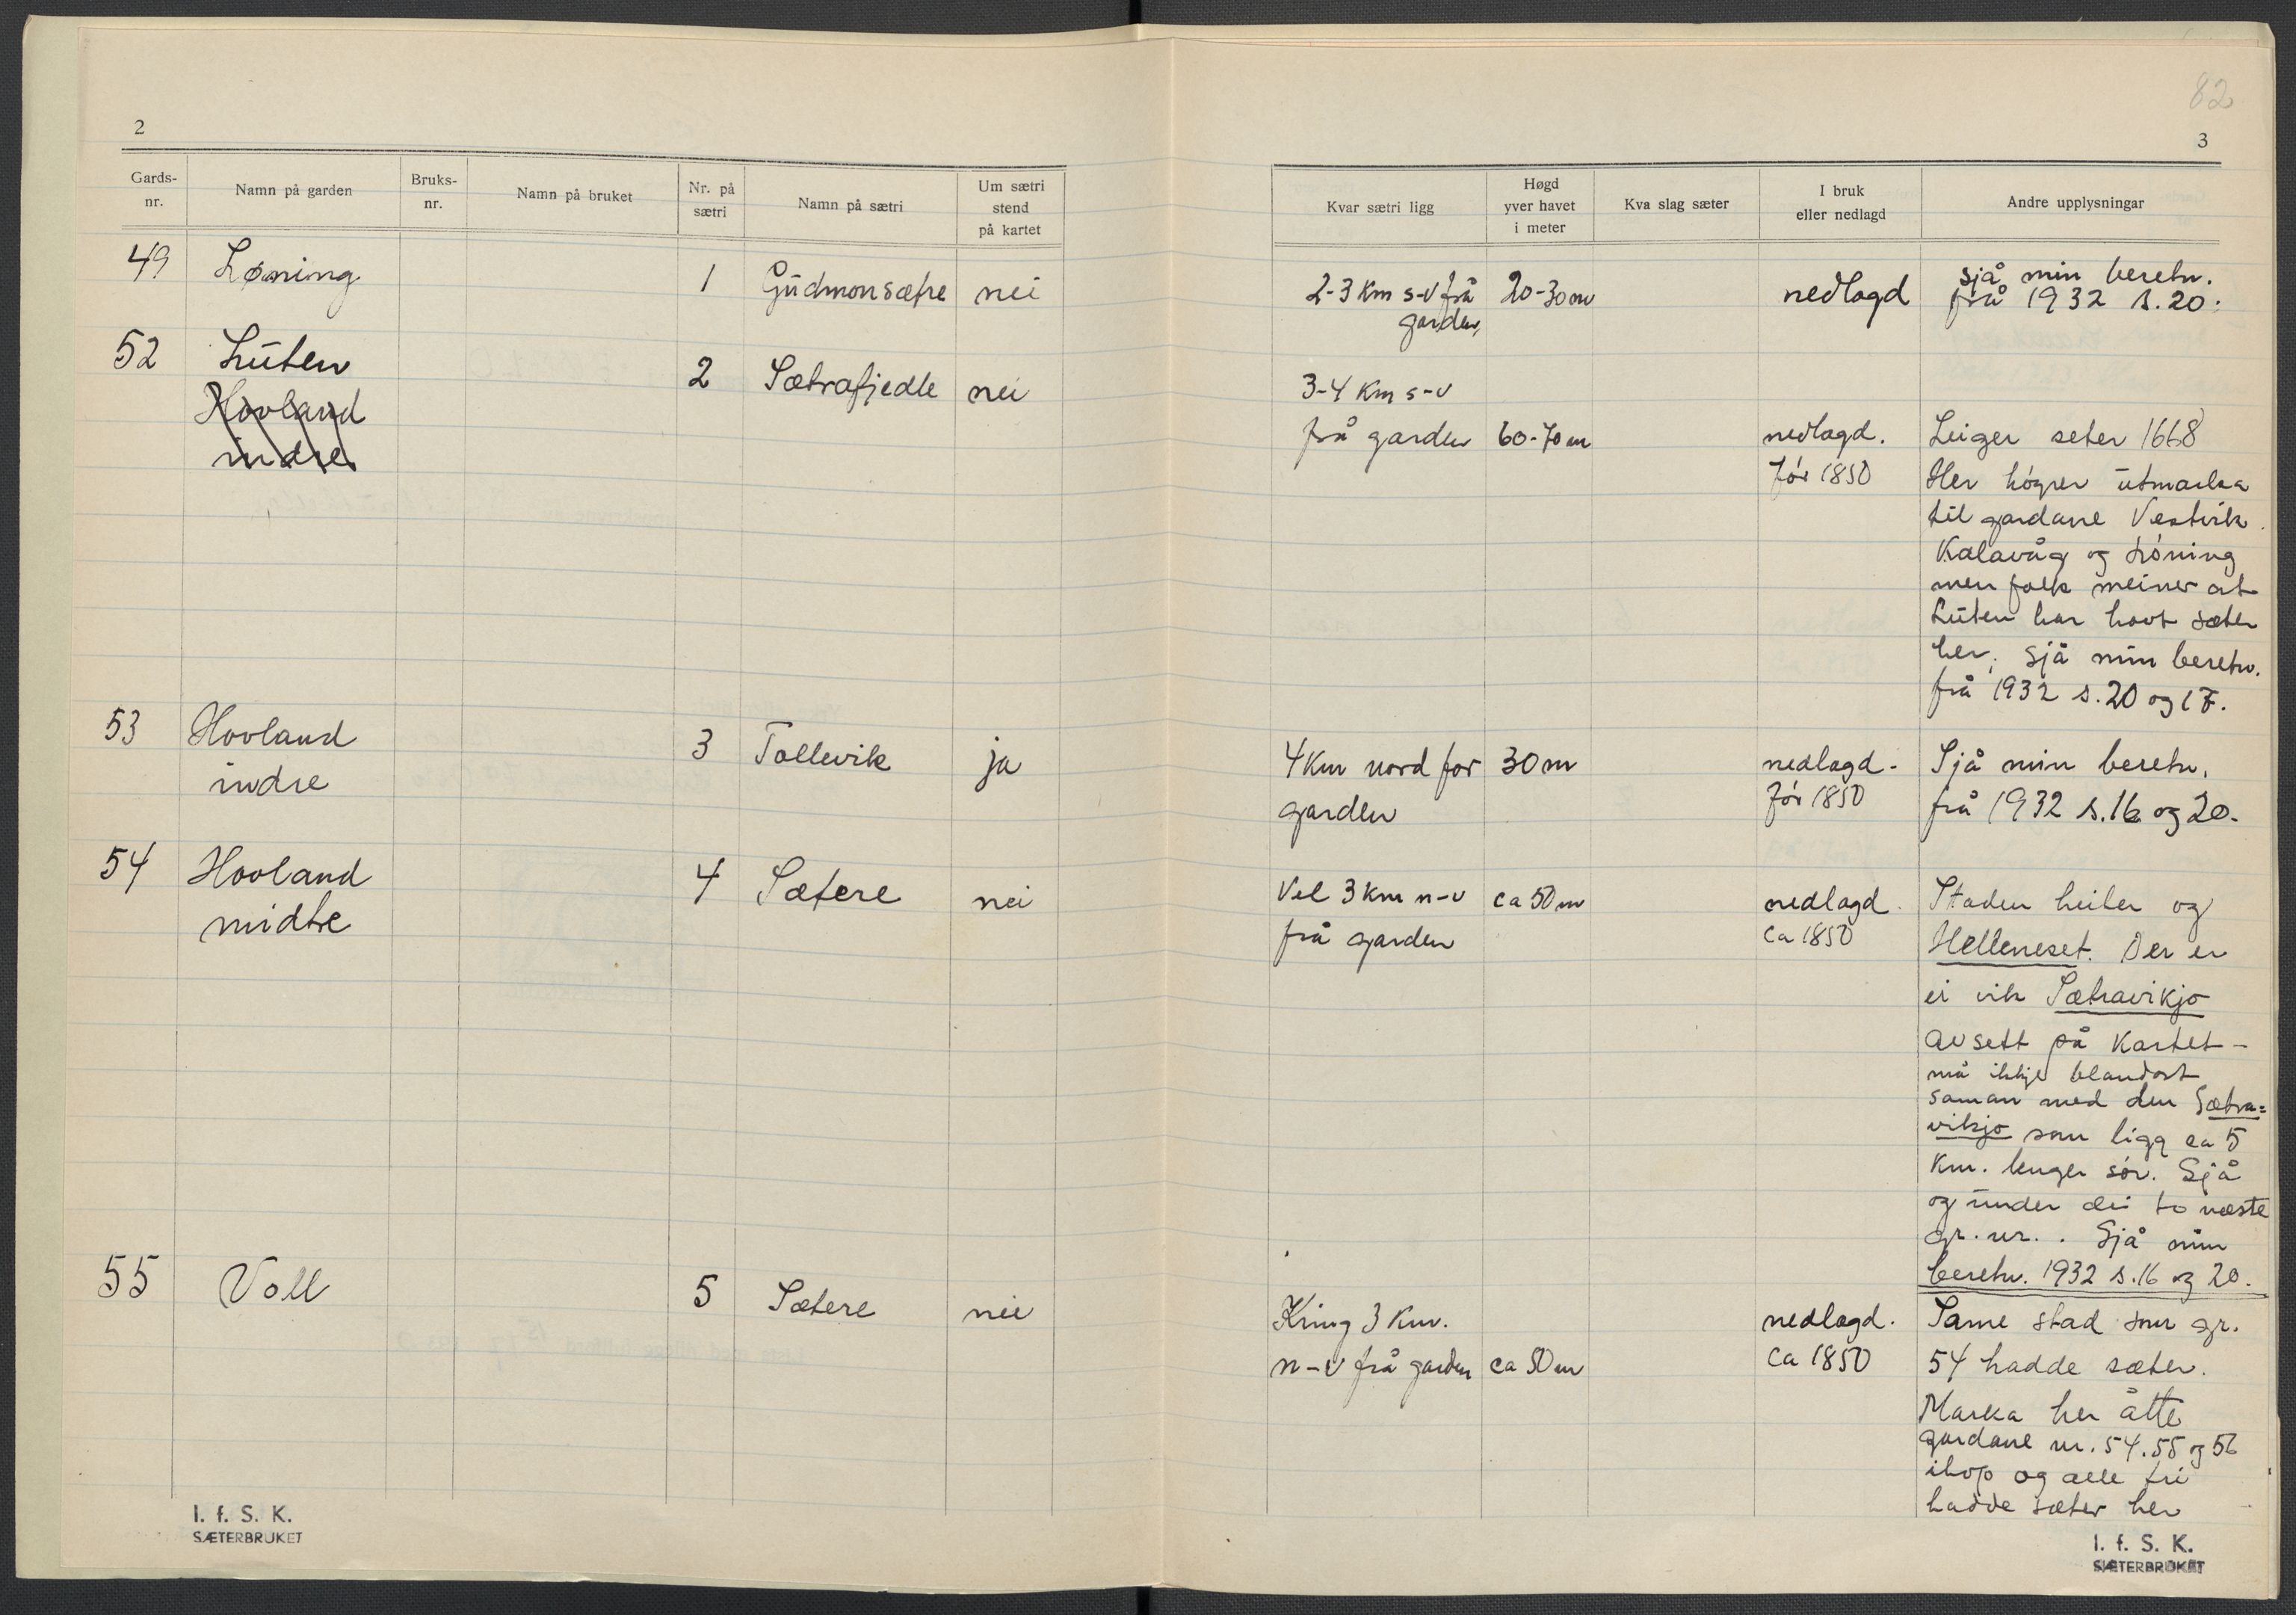 82
2
3
Gards-
nr.
Namn på garden
Bruks-
nr.
Namn på bruket
Nr. på
sætri
Namn på sætri
Um sætri
stend
på kartet
Kvar sætri ligg
Høgd
yver havet
i meter
Kva slag sæter
I bruk
eller nedlagd
Andre upplysningar
49 Løning 1 Gudmonsætre nei
2-3 km s-v frå
garden
20-30 m
nedlagd
sjå min beretn.
frå 1932 s. 20.
52 Luten
Hovland
indre
2 Sætrafjedle nei
3-4 km s-v
frå garden
60-70 m
nedlagd.
før 1850
Leiger seter 1668
Her høyrer utmarka
til gardane Vestvik
Kalavåg og Løning
men folk meiner at
Luten har havt sæter
her; sjå min beretn.
frå 1932 s. 20 og 17.
53 Hovland
indre
3 Tollevik ja
4 km nord for
garden
30 m
nedlagd-
før 1850
Sjå min beretn.
frå 1932 s. 16 og 20.
54 Hovland
midtre
4 Sætere nei
Vel 3 km n-v
frå garden
ca 50 m
nedlagd.
ca 1850
Staden heiter og
Helleneset. Der er
ei vik Sætravikjo
avsett på kartet -
må ikkje blandast
saman med den Sætra=
vikjo som ligg ca 5
km. lenger sør. Sjå
og under dei to næste
gr. nr. . Sjå min
beretn. 1932 s. 16 og 20.
55 Voll 5 Sætere nei
Kring 3 km.
n-v frå garden
ca 50 m
nedlagd.
ca 1850
Same stad som gr.
54 hadde sæter.
Marka her åtte
gardane nr. 54. 55 og 56
ihop og alle tri
hadde sæter her
I. f. S. K.
SÆTERBRUKET
I. f. S. K.
SÆTERBRUKET